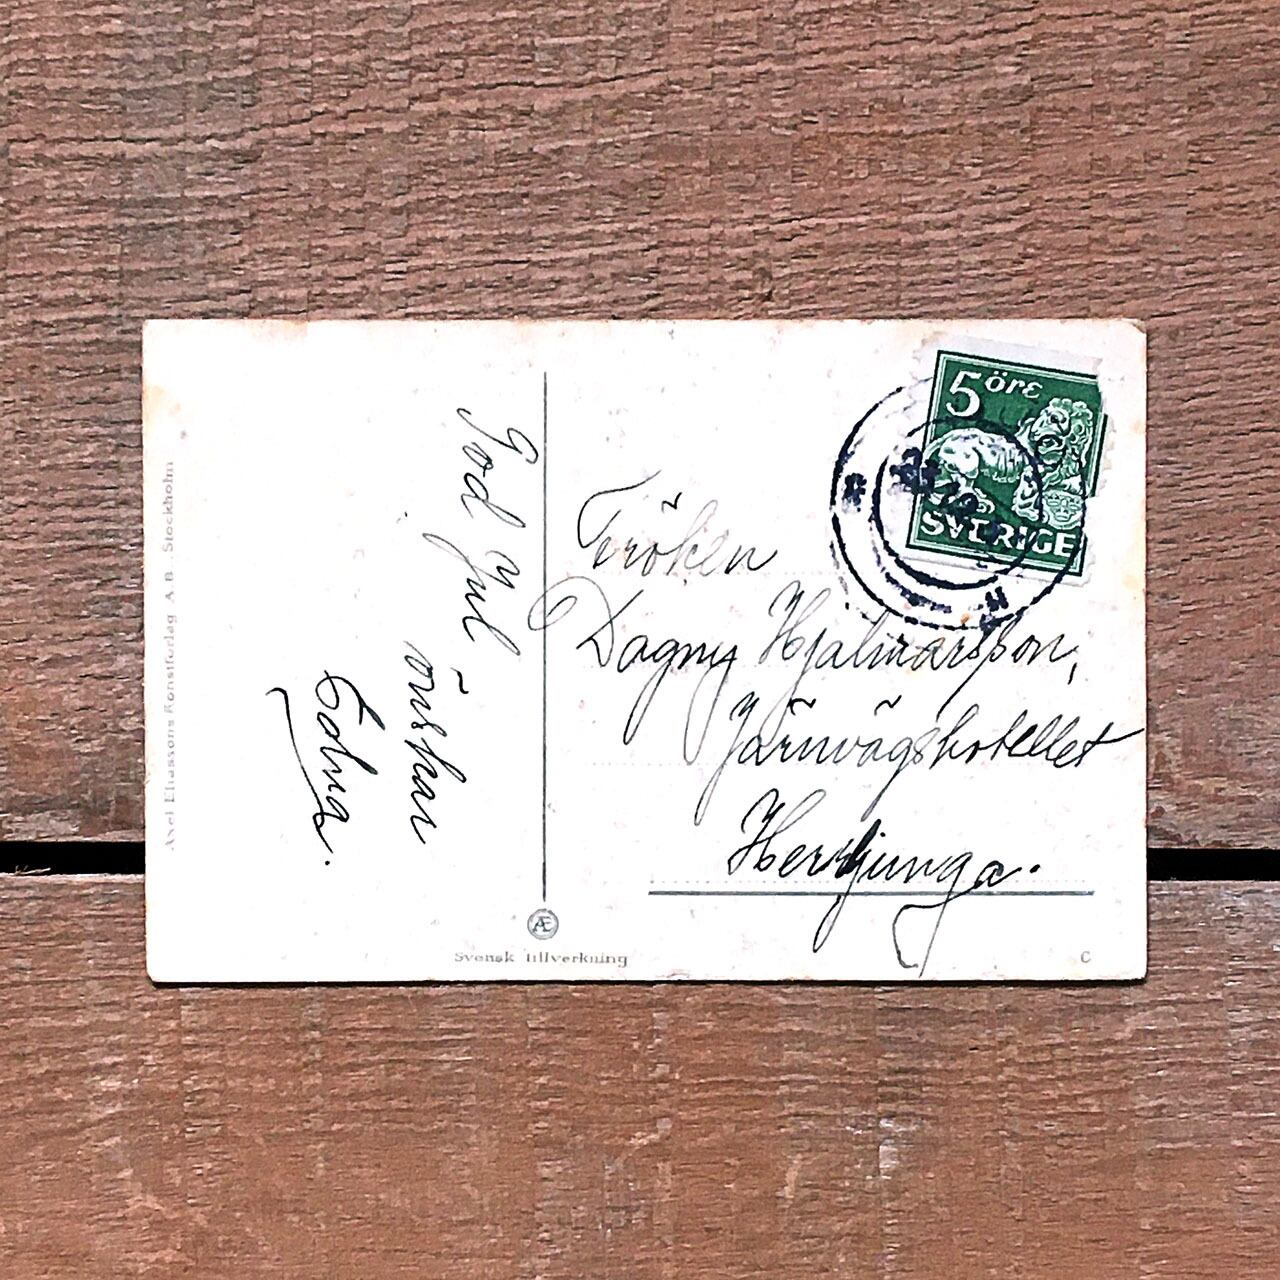 Axel Eliassons Konstförlag A.B. Stockholm
God Jul
önskar
Edna.
5 öre
SVERIGE
Fröken
Dagny Hjalmarsson,
Järnvägshotellet
Herrljunga.
Æ
Svensk tillverkning
C